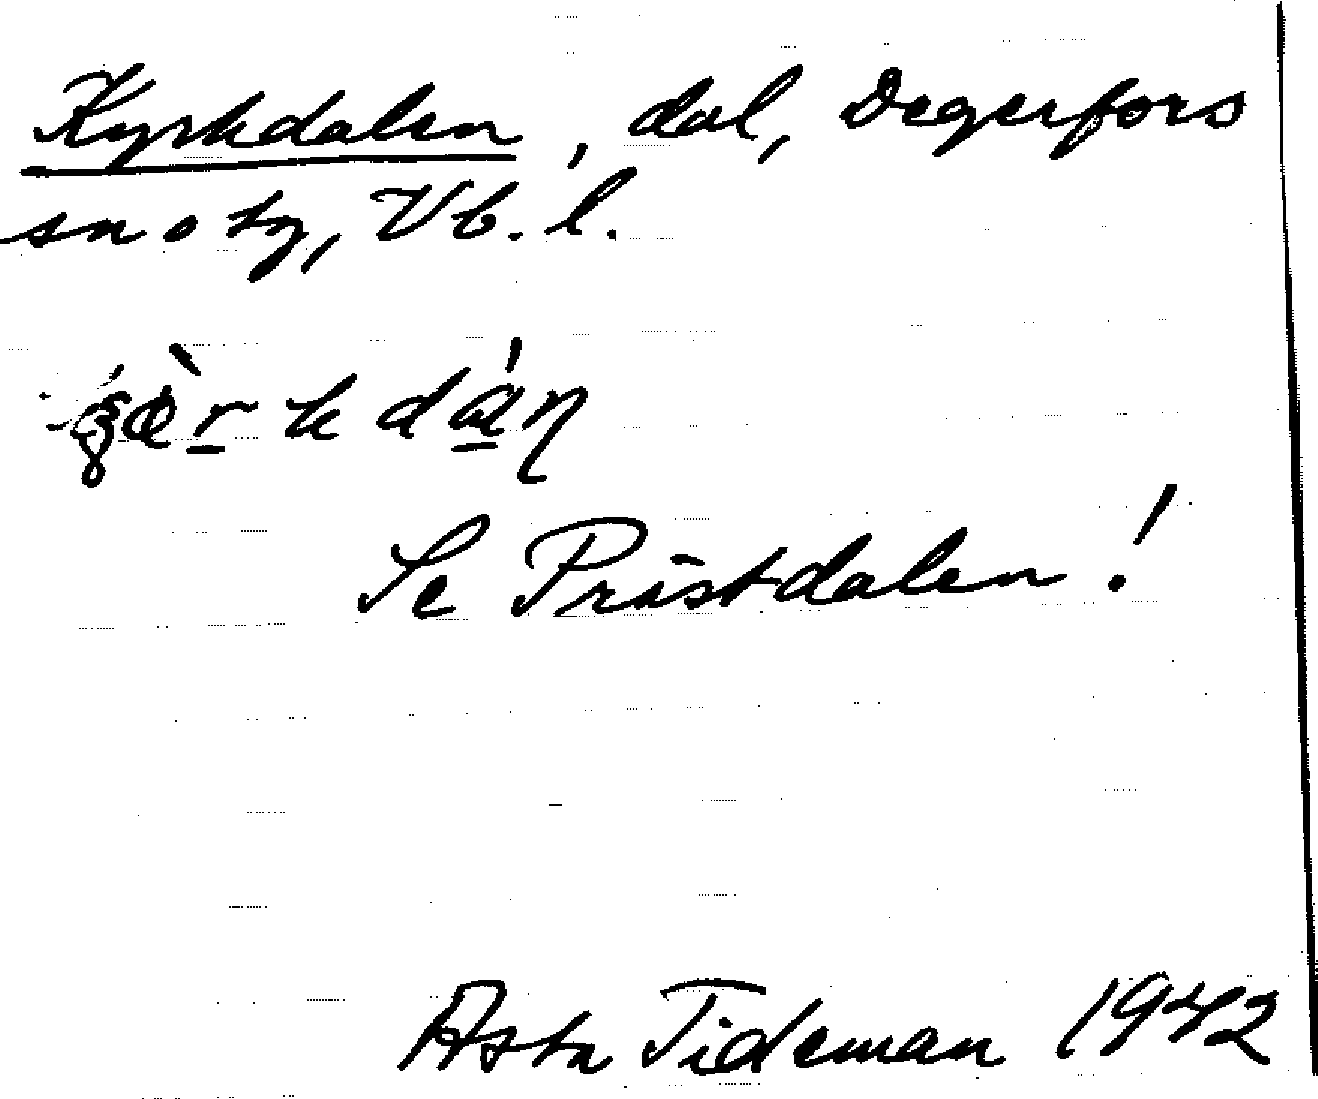 Kyrkdalen, dal, Degerfors
sn o tg, Vb. l.
Se Prästdalen!
Asta Tideman 1942